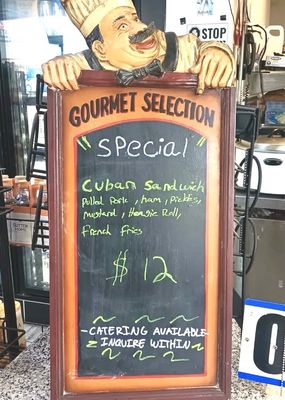 STOP
GOURMET SELECTION
"SPECIAL"
Cuban Sandwich
Pulled Pork, ham, Pickles,
mustard, Hoagie Roll,
French fries
$12
-CATERING AVAILABLE-
INQUIRE WITHIN